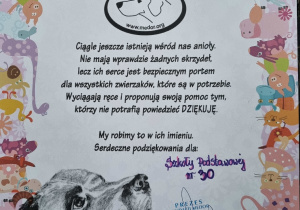 www.medor.org
Ciągle jeszcze istnieją wśród nas anioły.
Nie mają wprawdzie żadnych skrzydeł,
lecz ich serce jest bezpiecznym portem
dla wszystkich zwierzaków, które są w potrzebie.
Wyciągają ręce i proponują swoją pomoc tym,
którzy nie potrafią powiedzieć DZIĘKUJĘ.
My robimy to w ich imieniu.
Serdeczne podziękowania dla:
Szkoły Podstawowej
nr 30
PREZES